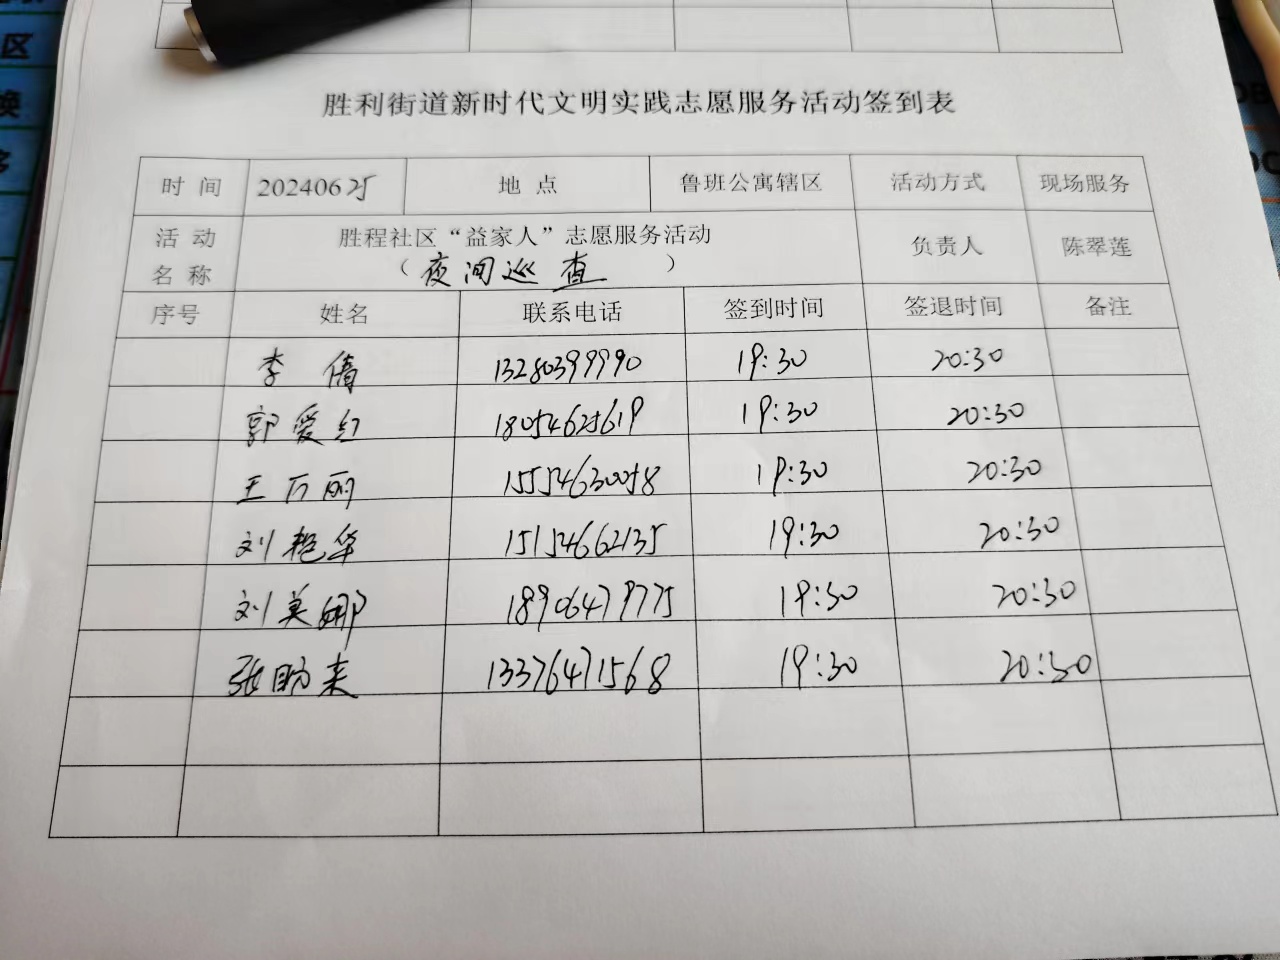 区
换
胜利街道新时代文明实践志愿服务活动签到表
时间 20240625 地点 鲁班公寓辖区 活动方式 现场服务
活动名称 胜程社区“益家人”志愿服务活动 负责人 陈翠莲
（夜间巡查）
序号 姓名 联系电话 签到时间 签退时间 备注
李倩 13280399990 19:30 20:30
郭爱红 18054625619 19:30 20:30
王万丽 15554630058 19:30 20:30
刘艳华 15154662135 19:30 20:30
刘美娜 18906479775 19:30 20:30
张助来 13376471568 19:30 20:30